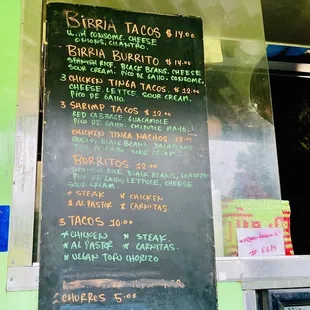 BIRRIA TACOS $14.00
W/H CONSOME. CHEESE
ONIONS, CILANTRO.
BIRRIA BURRITO $14.00
SPANISH RICE, BLACK BEANS, CHEESE
SOUR CREAM. PICO DE GALLO, CONSOME.
3 CHICKEN TINGA TACOS. $12.00
CHEESE, LETTUCE, SOUR CREAM.
PICO DE GALLO.
3 SHRIMP TACOS $12.00
RED CABBAGE GUACAMOLE
PICO DE GALLO. CHIPOTLE MAYO.
CHICKEN TINGA NACHOS 12.00
BLACK BEANS
SOUR CREAM.
BURRITOS 12.00
SPANISH RICE BLACK BEANS,
PICO DE GALLO, LETTUCE, CHEESE
SOUR CREAM
* STEAK * CHICKEN
* AL PASTOR * CARNITAS
3 TACOS 10.00
* CHICKEN * STEAK
* AL PASTOR * CARNITAS.
* VEGAN TOFU CHORIZO
CHURROS 5.00
# 6614